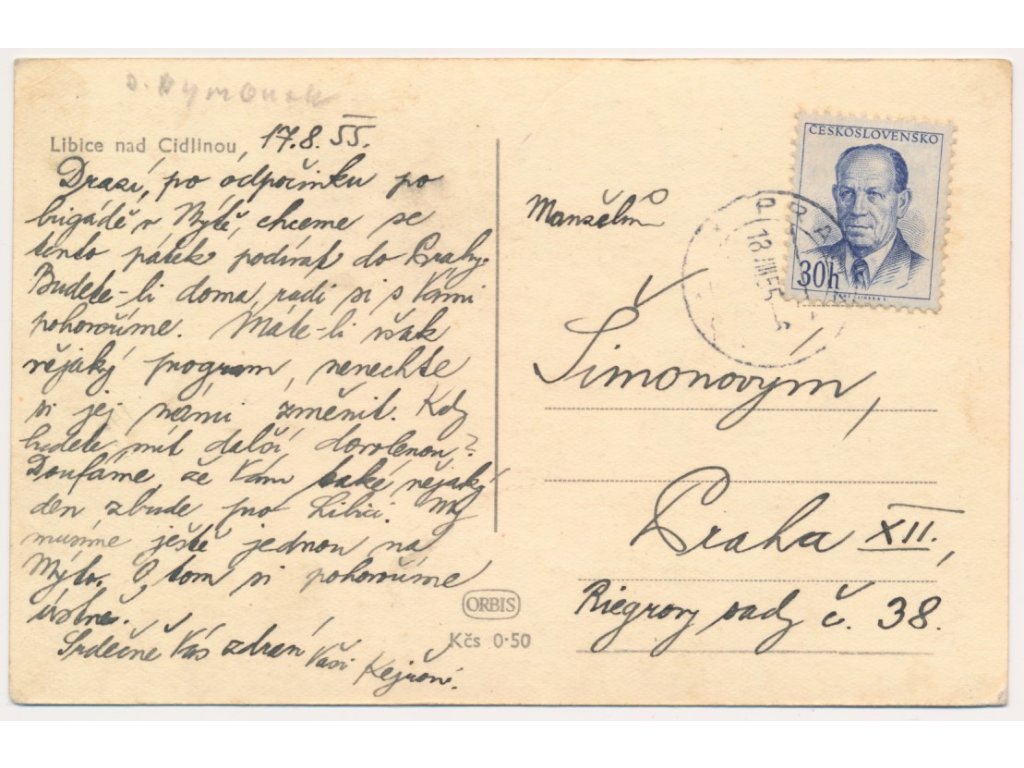 Libice nad Cidlinou, 17.8.55.
Drazí, po odpočinku po
brigádě v Mýtě, chceme se
tento pátek podívat do Prahy.
Budete-li doma, rádi si s Vámi
pohovoříme. Máte-li však
nějaký program, nenechte
si jej námi změnit. Kdy
budete mít další dovolenou?
Doufáme, že Vám také nějaký
den zbude pro Libici. My
musíme ještě jednou na
Mýto. O tom si pohovoříme
ústně.
Srdečně Vás zdraví
Vaši
ORBIS
Kčs 0·50
ČESKOSLOVENSKO
30h
PRAHA
18.VIII.55
Manželům
Šimonovým,
Praha XII.,
Riegrovy sady č. 38.